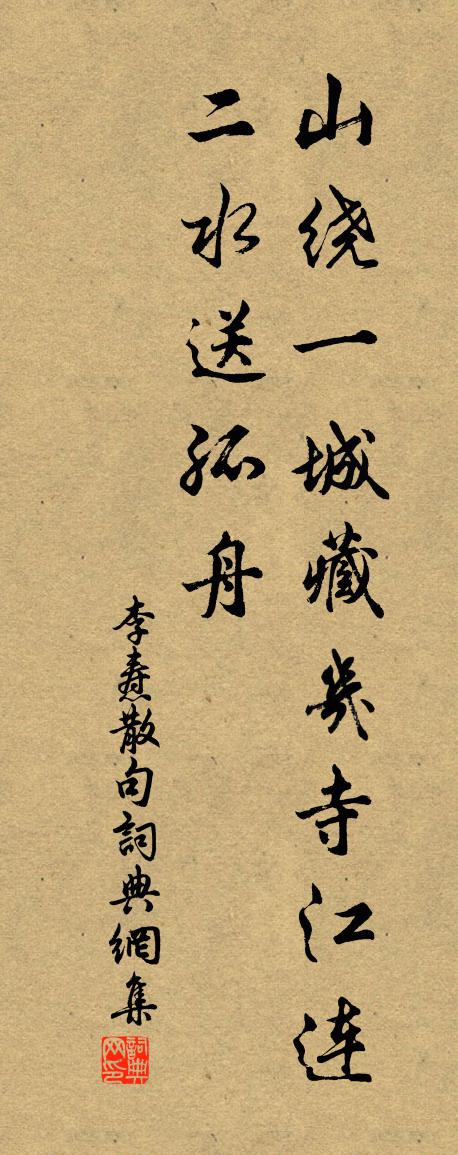 山绕一城藏几寺江连
二水送孤舟
李焘散句詞典網集
詞典网印